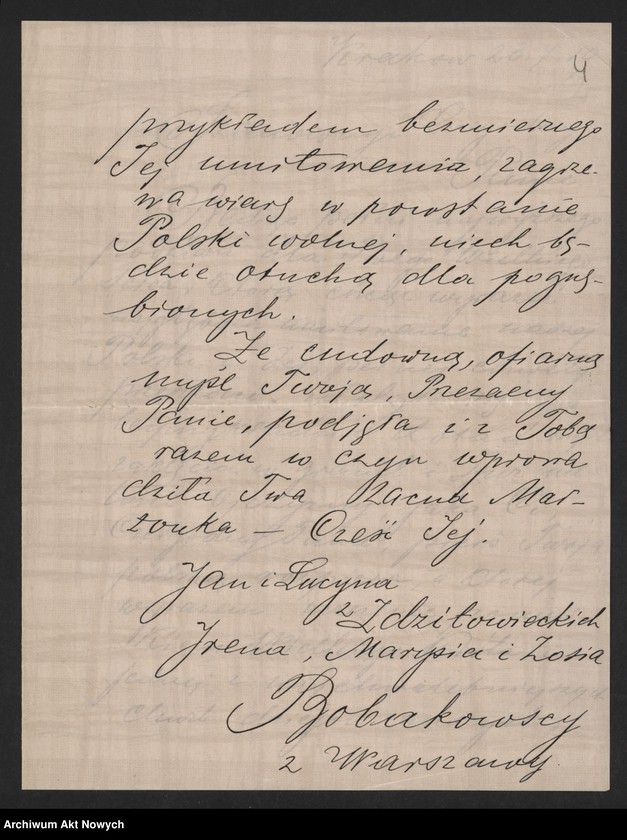 4
przykładem bezmiernego
Jej umiłowania, zagrze-
wa wiarę w powstanie
Polski wolnej, niech bę-
dzie otuchą dla pognę-
bionych.
Że cudowną, ofiarną
myśl Twoją, Prezacny
Panie, podjęła i z Tobą
razem w czyn wprowa
dziła Twa zacna Mał-
żonka — Cześć Jej.
Jan i Lucyna
z Zdziłowieckich
Irena, Marysia i Zosia
Bobakowscy
z Warszawy.
Archiwum Akt Nowych